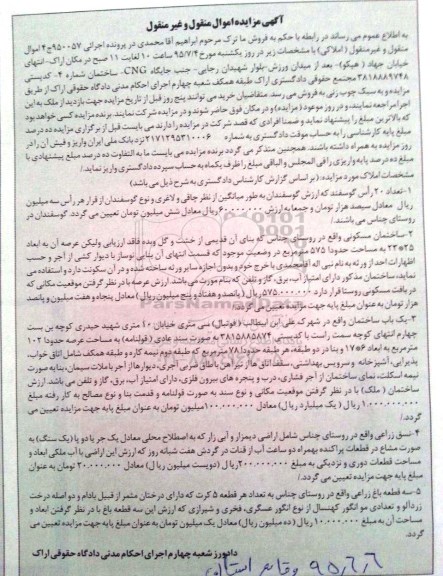 آگهی مزایده اموال منقول و غیر منقول
به اطلاع عموم می رساند در رابطه با حکم به فروش ما ترک مرحوم ابراهیم آقا محمدی در پرونده اجرائی ۹۵۰۰۵۷ج۴ اموال
منقول و غیر منقول (املاکی) با مشخصات زیر در روز یکشنبه مورخ ۹۵/۷/۴ ساعت ۱۰ لغایت ۱۱ صبح در مکان اراک-انتهای
خیابان جهاد (هپکو)- بعد از میدان ورزش-بلوار شهیدان رجایی- جنب جایگاه CNG، ساختمان شماره ۴- کدپستی
۳۸۱۸۸۸۹۷۴۸ مجتمع حقوقی دادگستری اراک طبقه همکف شعبه چهارم اجرای احکام مدنی دادگاه حقوقی اراک از طریق
مزایده و به سبک چوب زنی به فروش می رسد. متقاضیان خرید می توانند پنج روز قبل از تاریخ مزایده جهت بازدید از ملک به این
اجرا مراجعه نمایند. و در روز موعود (مزایده) و در مکان فوق حاضر شوند و در مزایده شرکت نمایند. برنده مزایده کسی خواهد بود
که بالاترین مبلغ را پیشنهاد نماید و ضمنا افرادی که قصد شرکت در مزایده را دارند می بایست قبل از برگزاری مزایده ده درصد
مبلغ پایه کارشناسی را به حساب موقت دادگستری به شماره ۲۱۷۱۲۹۵۳۱۰۰۰۶ نزد بانک ملی ایران واریز و فیش آن را در
روز مزایده به همراه داشته باشند. همچنین متذکر می گردد برنده مزایده می بایست ما به التفاوت ده درصد مبلغ پیشنهادی با
مبلغ ده درصد پایه واریزی را فی المجلس و الباقی مبلغ را ظرف یکماه به حساب سپرده دادگستری واریز نماید./
مشخصات املاک مورد مزایده: (بر اساس گزارش کارشناس دادگستری به شرح ذیل می باشد)
۱-تعداد ۲۰ رأس گوسفند که ارزش گوسفندان به طور میانگین از نظر چاقی و لاغری و نوع گوسفندان از قرار هر رأس سه میلیون
ریال معادل سیصد هزار تومان و جمعا به ارزش ۶۰.۰۰۰.۰۰۰ ریال معادل شش میلیون تومان تعیین می گردد. گوسفندان در
روستای چناس می باشند./
۲-ساختمان مسکونی واقع در روستای چناس که بنای آن قدیمی از خشت و گل وبده فاقد ارزیابی ولیکن عرصه آن به ابعاد
۲۵*۲۳ به مساحت حدودا ۵۷۵ مترمربع در وضعیت موجود که قسمت انتهای آن بنایی نوساز با دیوار کشی از آجر و حسب
اظهارات احد از ورثه به نام نبی اله آقامحمدی با خرج خود و بدون اجازه سایر ورثه ساخته شده و در آن سکونت دارد و استفاده می
نماید، ساختمان مذکور دارای امتیاز آب، برق، گاز و تلفن که بنام مورث می باشد. ارزش عرصه با در نظر گرفتن موقعیت مکانی که
در بافت مسکونی روستا قرار دارد، ۵۷۵.۰۰۰.۰۰۰ ریال (پانصد و هفتاد و پنج میلیون ریال) معادل پنجاه و هفت میلیون و پانصد
هزار تومان به عنوان مبلغ پایه جهت مزایده تعیین می گردد./
۳-یک باب ساختمان واقع در شهرک علی ابن ابیطالب (فوتبال) سی متری خیابان ۱۰ متری شهید حیدری کوچه بن بست
چهارم انتهای کوچه سمت راست با کدپستی ۳۸۱۵۸۸۵۸۷۴ به صورت سند عادی (قولنامه) به مساحت عرصه حدودا ۱۰۲
مترمربع به ابعاد ۶*۱۷ و بنا در دو طبقه، هر طبقه حدودا ۷۸ مترمربع که طبقه دوم نیمه کاره و طبقه همکف شامل اتاق خواب،
پذیرایی، آشپزخانه و سرویس بهداشتی، سقف اتاق ها از تیرآهن با طاق ضربی آجری، دیوارها از آجر با ملات سیمان، بنا به صورت
نیمه اسکلت، نمای ساختمان از آجر فشاری، درب و پنجره های بیرون فلزی، دارای امتیاز آب، برق، گاز و تلفن می باشد. ارزش
ساختمان (ملک) با در نظر گرفتن موقعیت مکانی و نوع سند به صورت قولنامه و قدمت بنا و نوع مصالح به کار رفته مبلغ
۱.۰۰۰.۰۰۰.۰۰۰ ریال (یک میلیارد ریال) معادل ۱۰۰.۰۰۰.۰۰۰ میلیون تومان به عنوان مبلغ پایه جهت مزایده تعیین می
گردد./
۴-نسق زراعی واقع در روستای چناس شامل اراضی دیمزار و آبی زار که به اصطلاح محلی معادل یک جریا دو پا (یک سنگ) به
صورت مشاع در قطعات پراکنده بهمراه دو ساعت آب از قنات در گردش هفت شبانه روز که ارزش این اراضی با آب ملکی ابعاد و
مساحت قطعات دوری و نزدیکی به مبلغ ۲۰۰.۰۰۰.۰۰۰ ریال (دویست میلیون ریال) معادل ۲۰.۰۰۰.۰۰۰ تومان به عنوان
مبلغ پایه جهت مزایده تعیین می گردد./
۵-سه قطعه باغ زراعی واقع در روستای چناس به تعداد هر قطعه ۵ کرت که دارای درختان مثمر از قبیل بادام و دو اصله درخت
زردآلو و تعدادی مو انگور کهنسال از نوع انگور عسگری، فخری و شیرازی که ارزش این سه قطعه باغ با در نظر گرفتن ابعاد و
مساحت آن به مبلغ ۱۰.۰۰۰.۰۰۰ ریال (ده میلیون ریال) معادل یک میلیون تومان به عنوان مبلغ پایه جهت مزایده تعیین می
گردد./
دادورز شعبه چهارم اجرای احکام مدنی دادگاه حقوقی اراک
۹۵,۶,۶